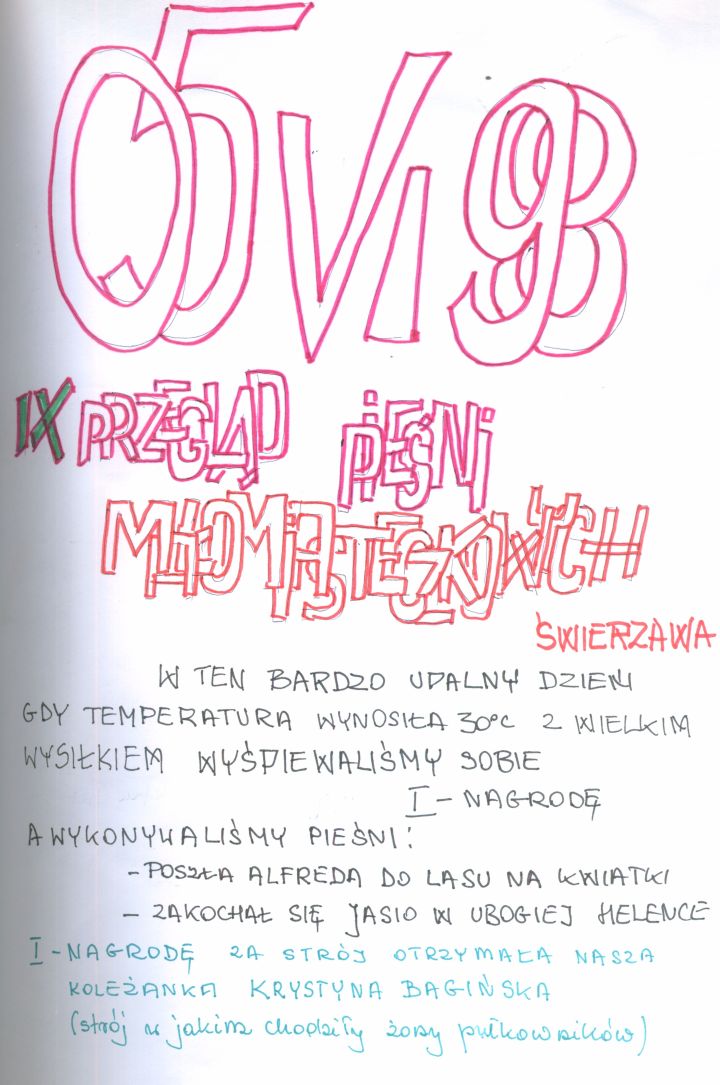 05 VI 98
IX PRZEGLĄD PIEŚNI
MAŁOMIASTECZKOWYCH
ŚWIERZAWA
W TEN BARDZO UPALNY DZIEŃ
GDY TEMPERATURA WYNOSIŁA 30°C Z WIELKIM
WYSIŁKIEM WYŚPIEWALIŚMY SOBIE
I - NAGRODĘ
A WYKONYWALIŚMY PIEŚNI:
- POSZŁA ALFREDA DO LASU NA KWIATKI
- ZAKOCHAŁ SIĘ JASIO W UBOGIEJ HELENCE
I - NAGRODĘ ZA STRÓJ OTRZYMAŁA NASZA
KOLEŻANKA KRYSTYNA BAGIŃSKA
(strój w jakim chodziły żony pułkowników)